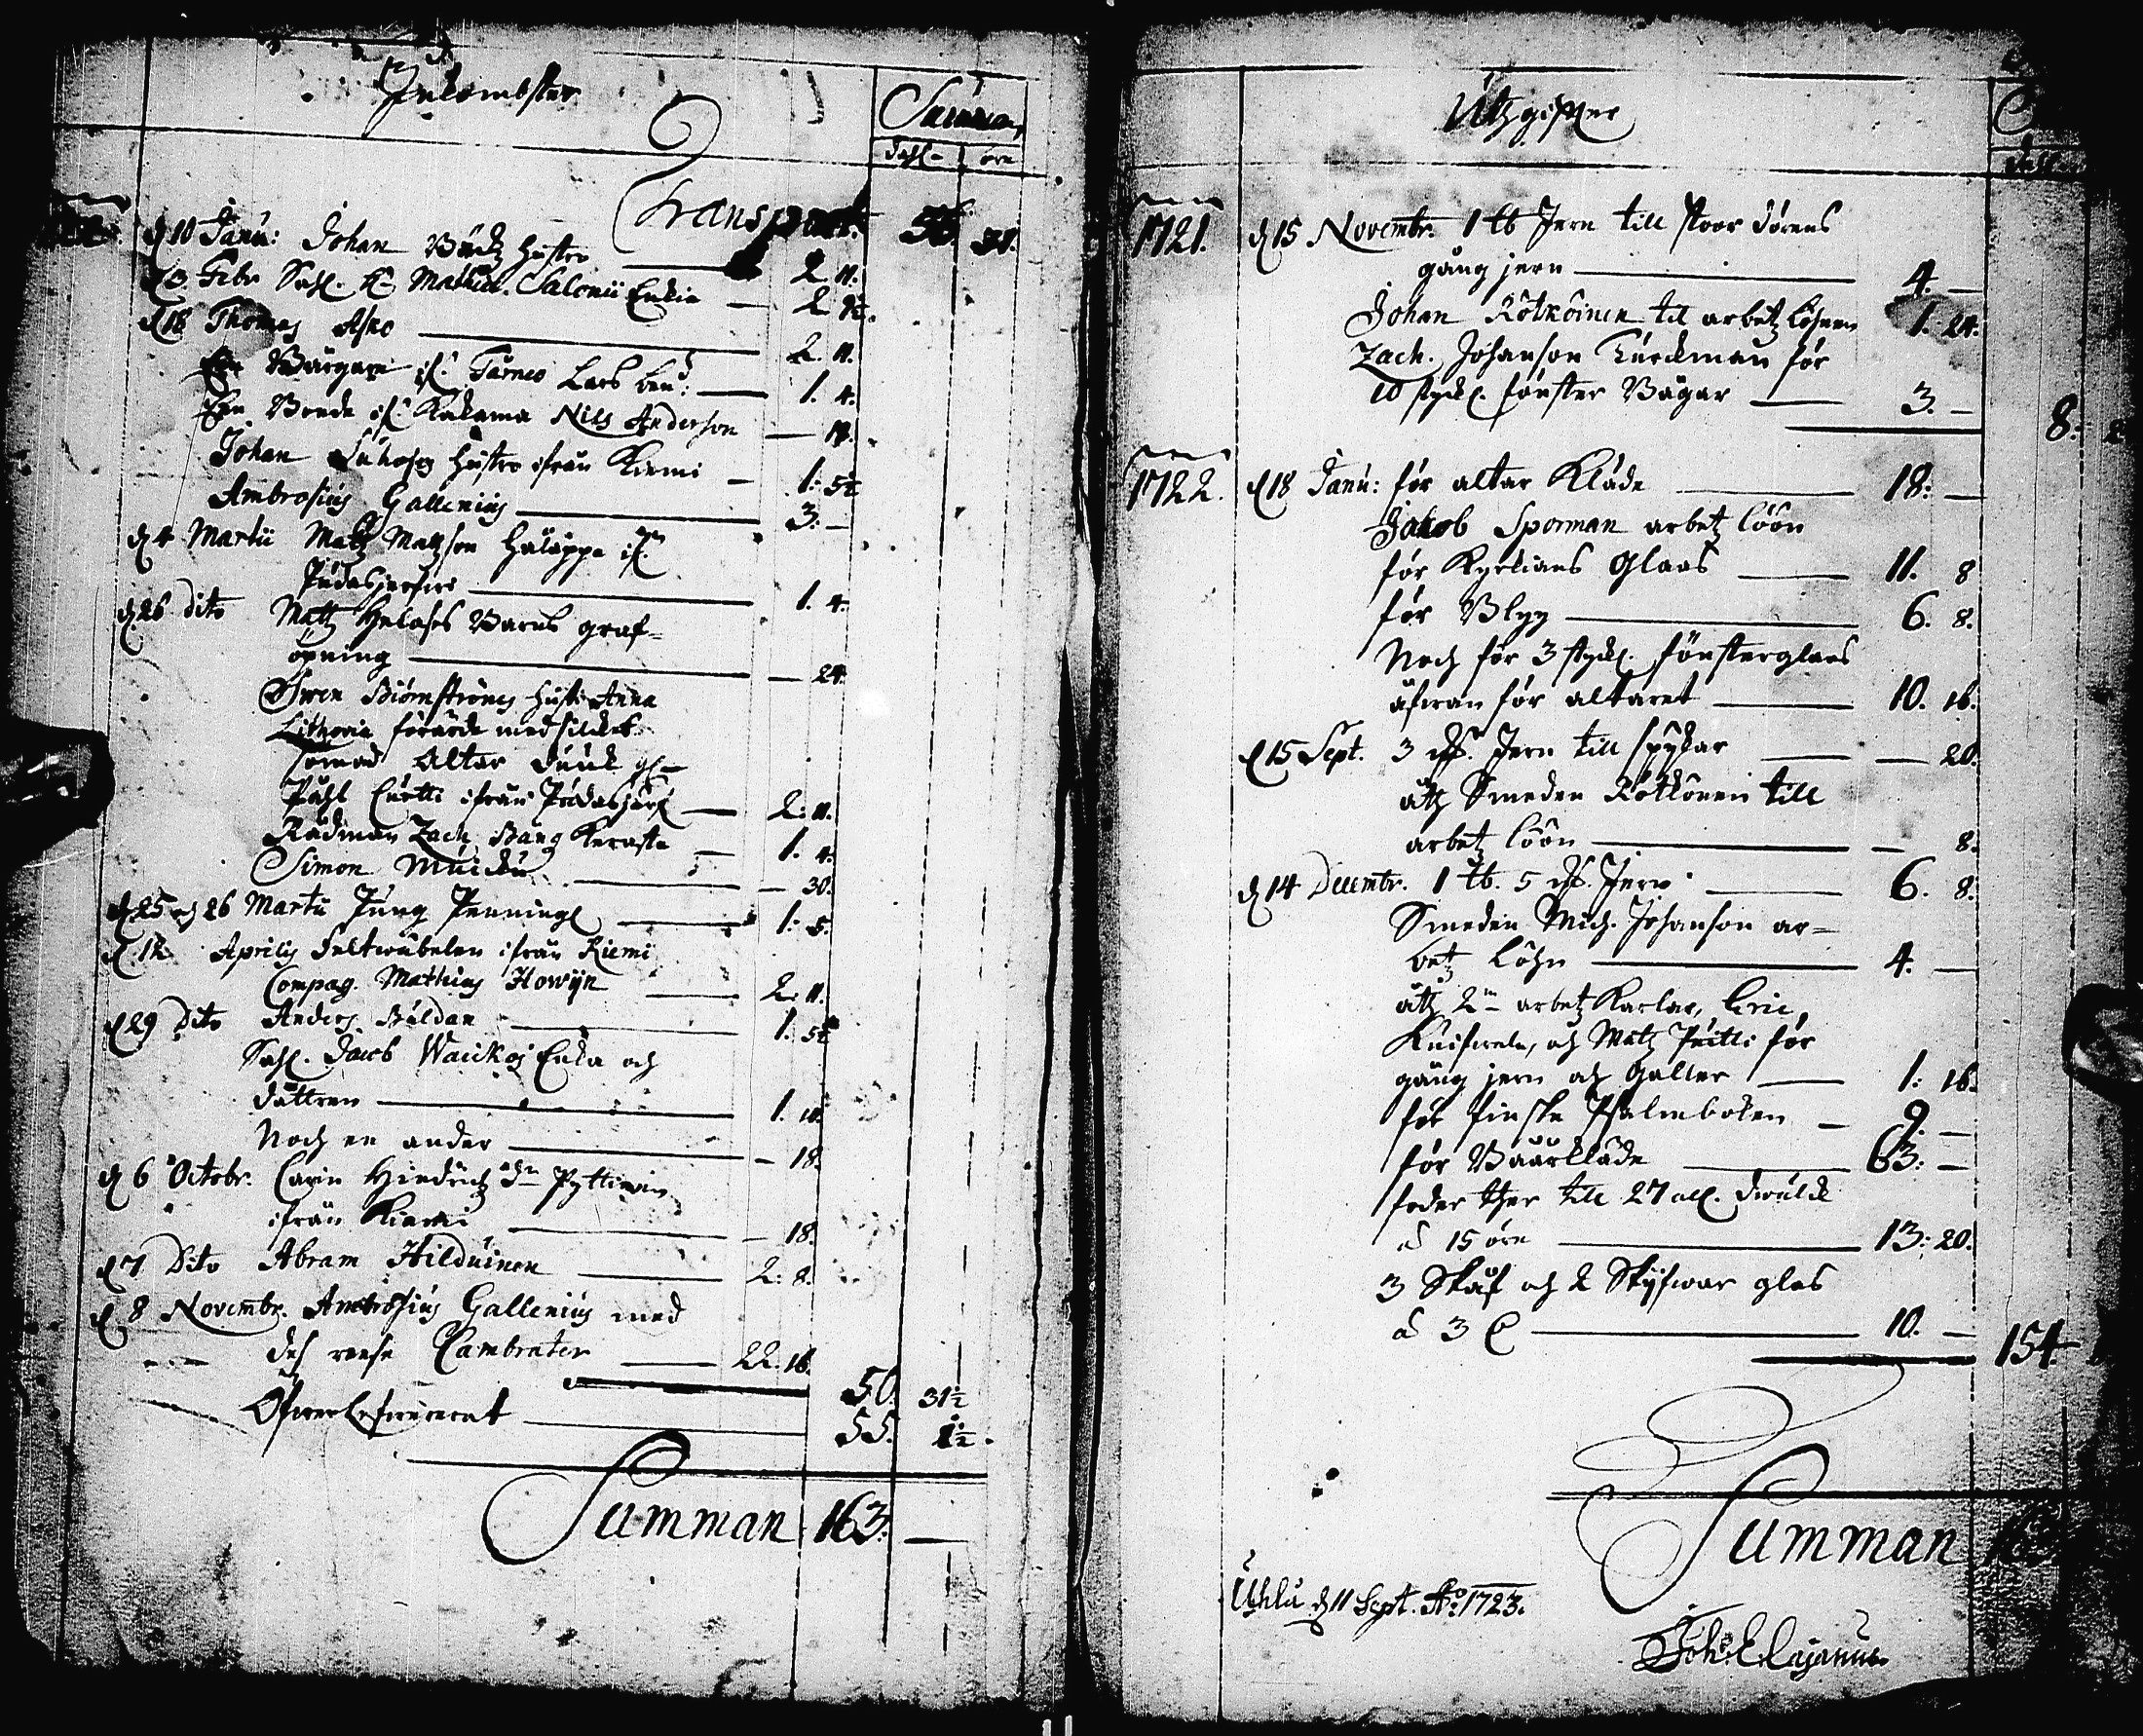 Inkombster
Summan
dahl- öre
Transport. 56. 31.
d 10 Janu: Johan Bück Hustro 2 11.
d 3 Febr Sahl. H Mathiæ Salonii Enkia — 2 9½.
d 18 Thomas Asko 2. 11.
En Borgare if: Tårneo Lars ben: 1. 4.
En Bonde if: Kakama Nils Anderson — 18.
Johan Juhoss Hustro ifrån Kiemi 1: 5½
Ambrosius Gallenius 3: —
d 4 Martii Matz Matzson Haláppa if:
Pudasjerfwi 1. 4.
d 26 dito Matz Helases Barns graf=
öpning — 24.
Swen Biörnströms Hustro Anna
Lithovia förärde med silckes
sömad Altar duuk
Påhl Curtti ifrån Pudasjärf 2: 11.
Rådman Zach. Bång Keraste 1. 4.
Simon Muicku — 30.
d 25 och 26 Martii Pung Penningl 1: 5.
d 12 Aprilis Feltwäbelen ifrån Kiemi
Compag. Mathias Howijn 2. 11.
d 29 Dito Anders Buldan 1. 5½
Sahl. Jacob Waickos Enka och
dåttren 1. 10.
Noch en ander — 18.
d 6 Octobr. Carin Hindrichz dr Pyttinin
ifrån Kiemi — 18.
d 7 Dito Abram Hilduinen 2: 8.
d 8 Novembr. Ambrosius Gallenius med
des reese Cambrater 22. 16.
50. 31½
Öfwer Lefwererat 55. 1½.
Summan 163. —
Uthgifter
dahl
1721. d 15 Novembr. 1 lb Jern till stoor dörens
gång jern 4. —
Johan Rötköinen til arbetz löhnen 1. 24.
Zach. Johanson Turckman för
10 styck. fönster Bågar 3. —
8.
1722. d 18 Janu: för altar Kläde 18: —
Jakob Sporman arbetz löön
för Kyrkians Glaas 11. 8
för Blyy 6. 8.
Noch för 3 styck. fönsterglaas
åfwan för altaret 10. 16.
d 15 Sept. 3 Jern till spykar — 20.
åth Smeden Rötkönen till
arbetz löön — 8.
d 14 Decembr. 1 lb. 5 Jern 6. 8.
Smeden Mich. Johanson ar=
betz Löhn 4. —
åth 2 arbetz Karlar, Eric
Knifwele, och Matz Pritti för
gång jern och Galler 1: 16.
för finske Psalmboken 9. —
för Båårkläde 63: —
foder ther till 27 all. dwälck
a 15 öre 13: 20.
3 Skåf och 2 Skijfwar glas
a 3 10. —
154.
Summan 163
Uhlu d 11 Sept. Ao: 1723.
Joh: E. Cajanus